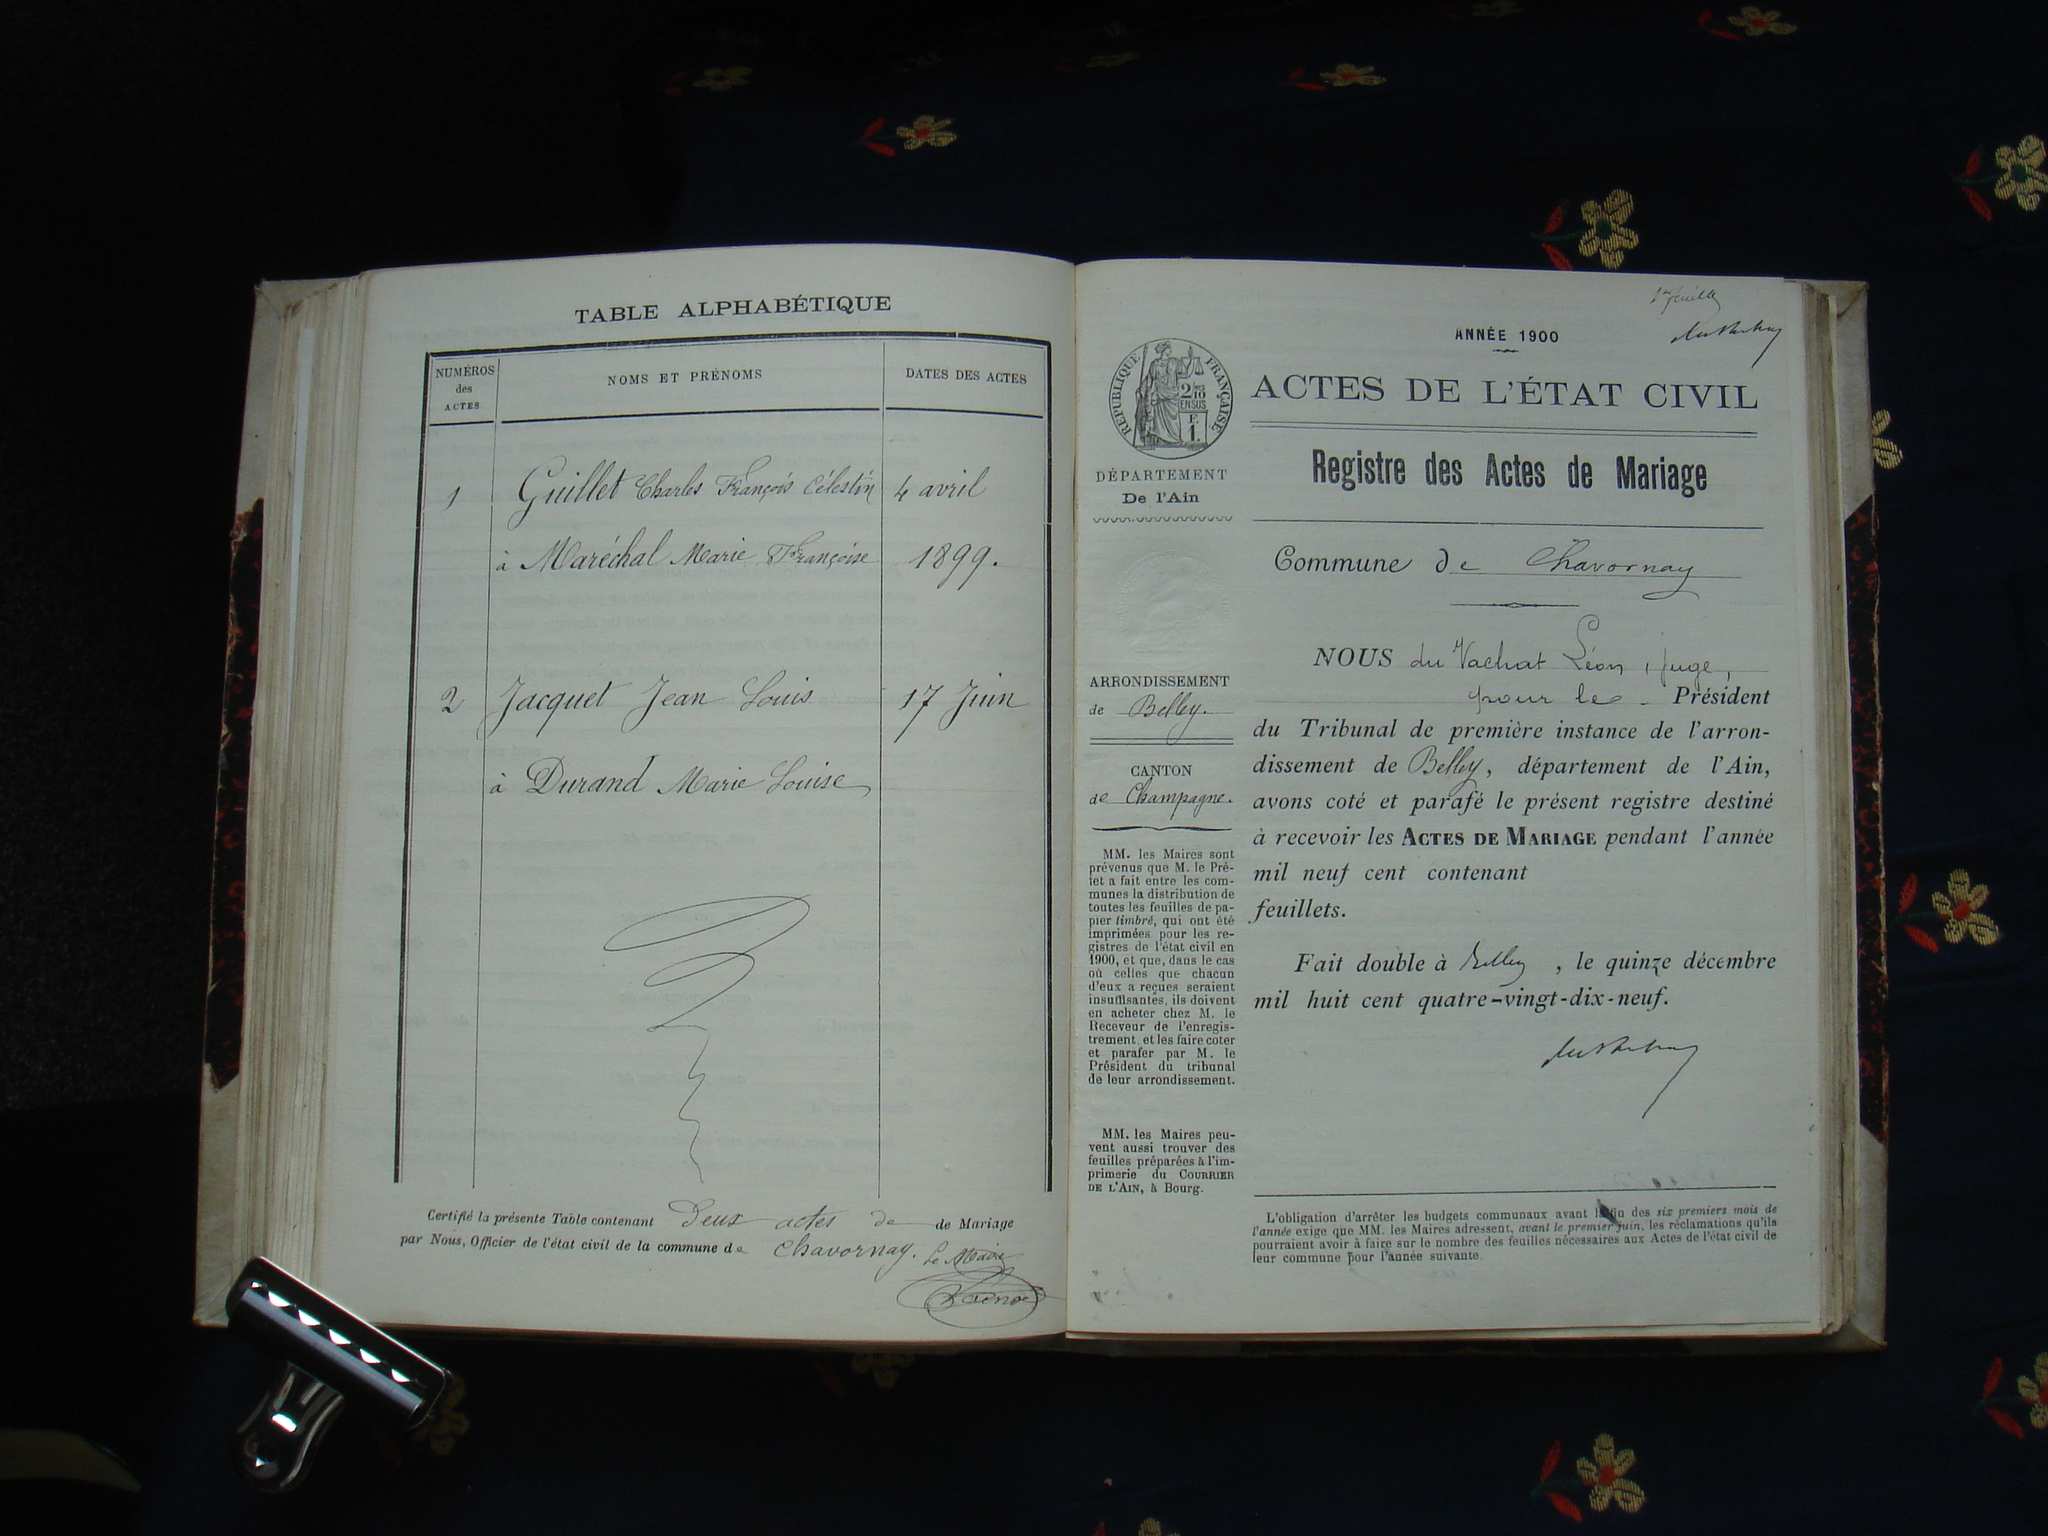 TABLE ALPHABÉTIQUE
NUMÉROS
des
ACTES
NOMS ET PRÉNOMS
DATES DES ACTES
1 Guillet Charles François Célestin 4 avril
à Maréchal Marie Françoise 1899.
2 Jacquet Jean Louis 17 Juin
à Durand Marie Louise
Certifié la présente Table contenant Deux actes de de Mariage
par Nous, Officier de l'état civil de la commune de Chavornay. Le Maire
1er feuillet
ANNÉE 1900
RÉPUBLIQUE FRANÇAISE
2/10
EN SUS
F.
1.
ACTES DE L'ÉTAT CIVIL
Registre des Actes de Mariage
DÉPARTEMENT
De l'Ain
Commune de Chavornay
ARRONDISSEMENT
de Belley.
CANTON
de Champagne.
MM. les Maires sont
prévenus que M. le Pré-
fet a fait entre les com-
munes la distribution de
toutes les feuilles de pa-
pier timbré, qui ont été
imprimées pour les re-
gistres de l'état civil en
1900, et que, dans le cas
où celles que chacun
d'eux a reçues seraient
insuffisantes, ils doivent
en acheter chez M. le
Receveur de l'enregis-
trement et les faire coter
et parafer par M. le
Président du tribunal
de leur arrondissement.
MM. les Maires peu-
vent aussi trouver des
feuilles préparées à l'im-
primerie du COURRIER
DE L'AIN, à Bourg.
NOUS du Vachat Léon, juge,
pour le Président
du Tribunal de première instance de l'arron-
dissement de Belley, département de l'Ain,
avons coté et parafé le présent registre destiné
à recevoir les ACTES DE MARIAGE pendant l'année
mil neuf cent contenant
feuillets.
Fait double à Belley, le quinze décembre
mil huit cent quatre-vingt-dix-neuf.
L'obligation d'arrêter les budgets communaux avant la fin des six premiers mois de
l'année exige que MM. les Maires adressent, avant le premier juin, les réclamations qu'ils
pourraient avoir à faire sur le nombre des feuilles nécessaires aux Actes de l'état civil de
leur commune pour l'année suivante.